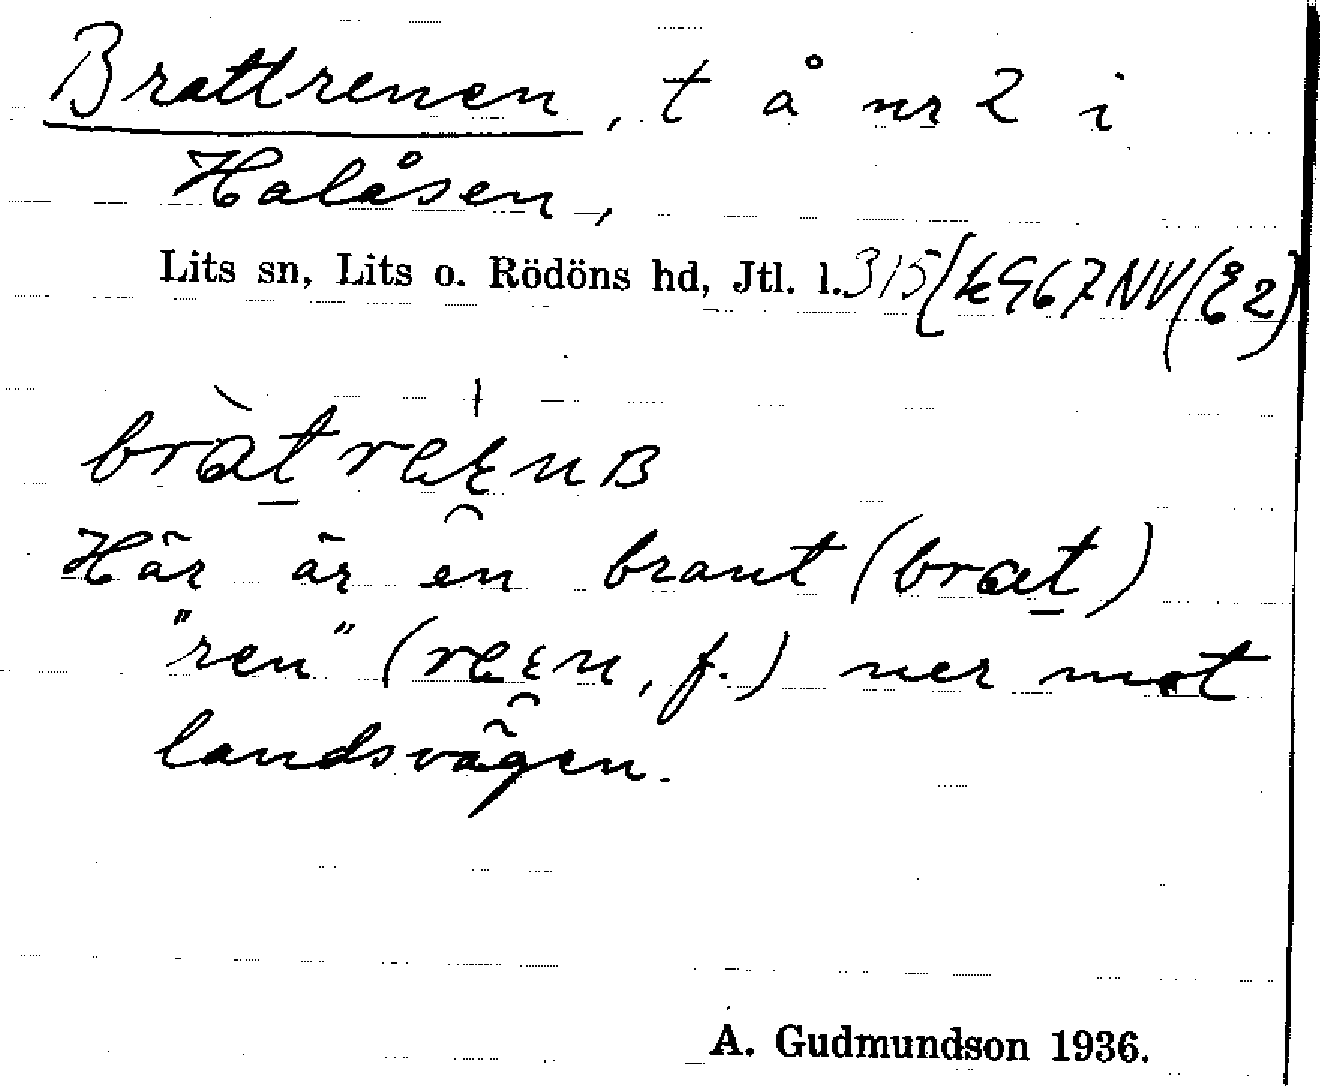 Brattrenen, t å nr 2 i
Halåsen,
Lits sn, Lits o. Rödöns hd, Jtl. l. 315
Här är en brant (brat)
"ren" ( , f.) ner mot
landsvägen.
A. Gudmundson 1936.